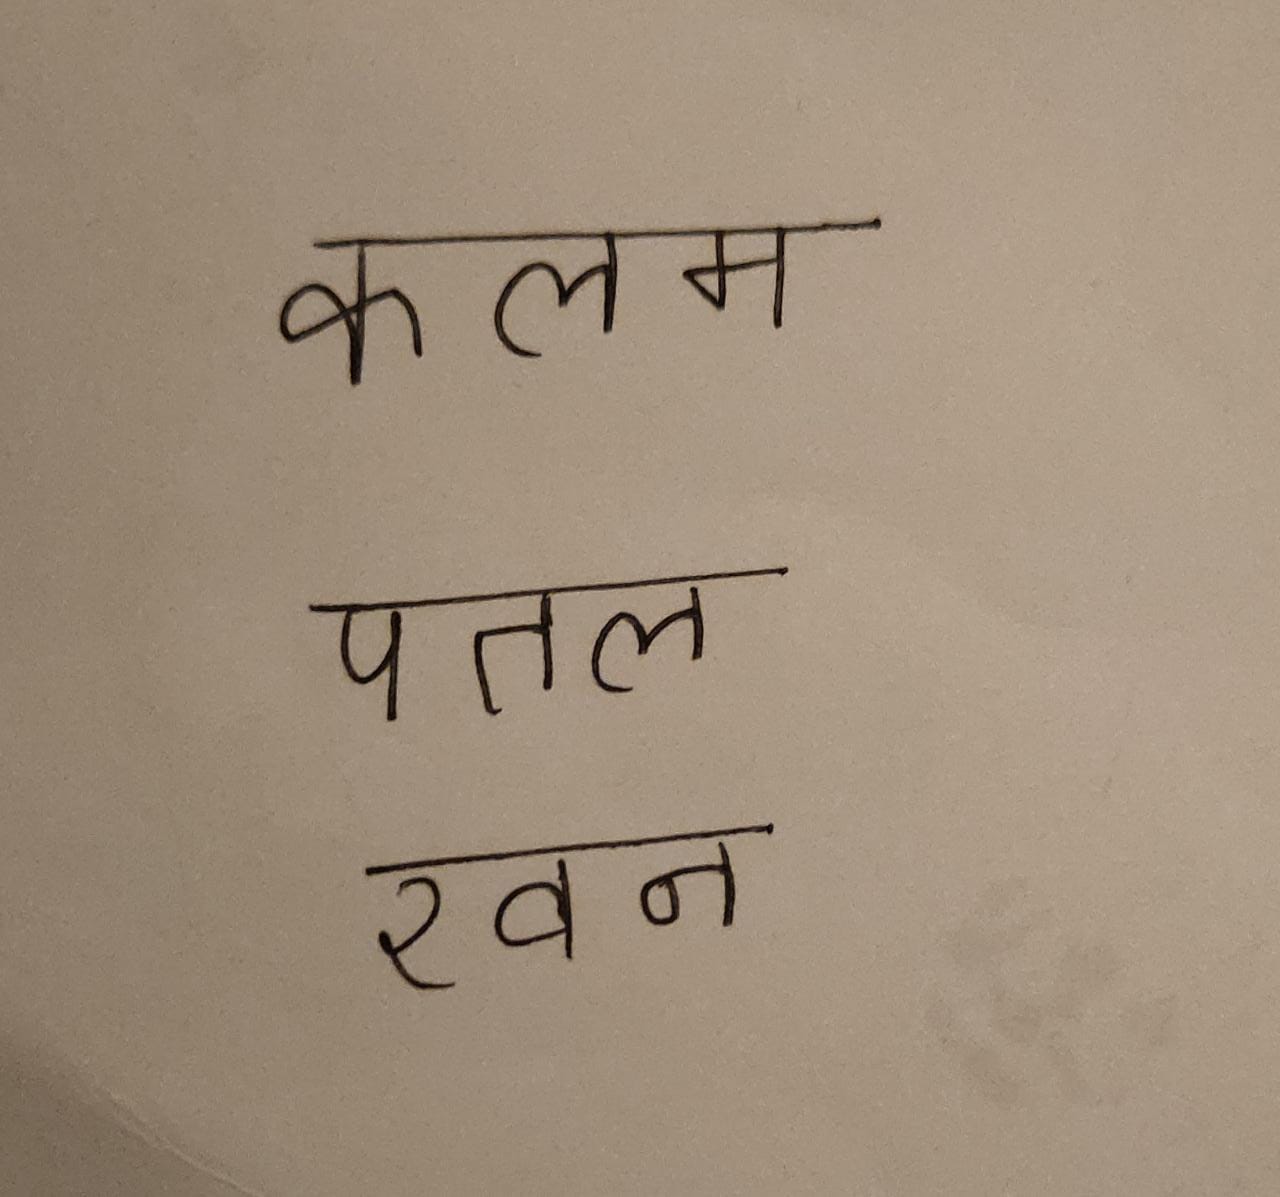 कलम
पतल
रवन